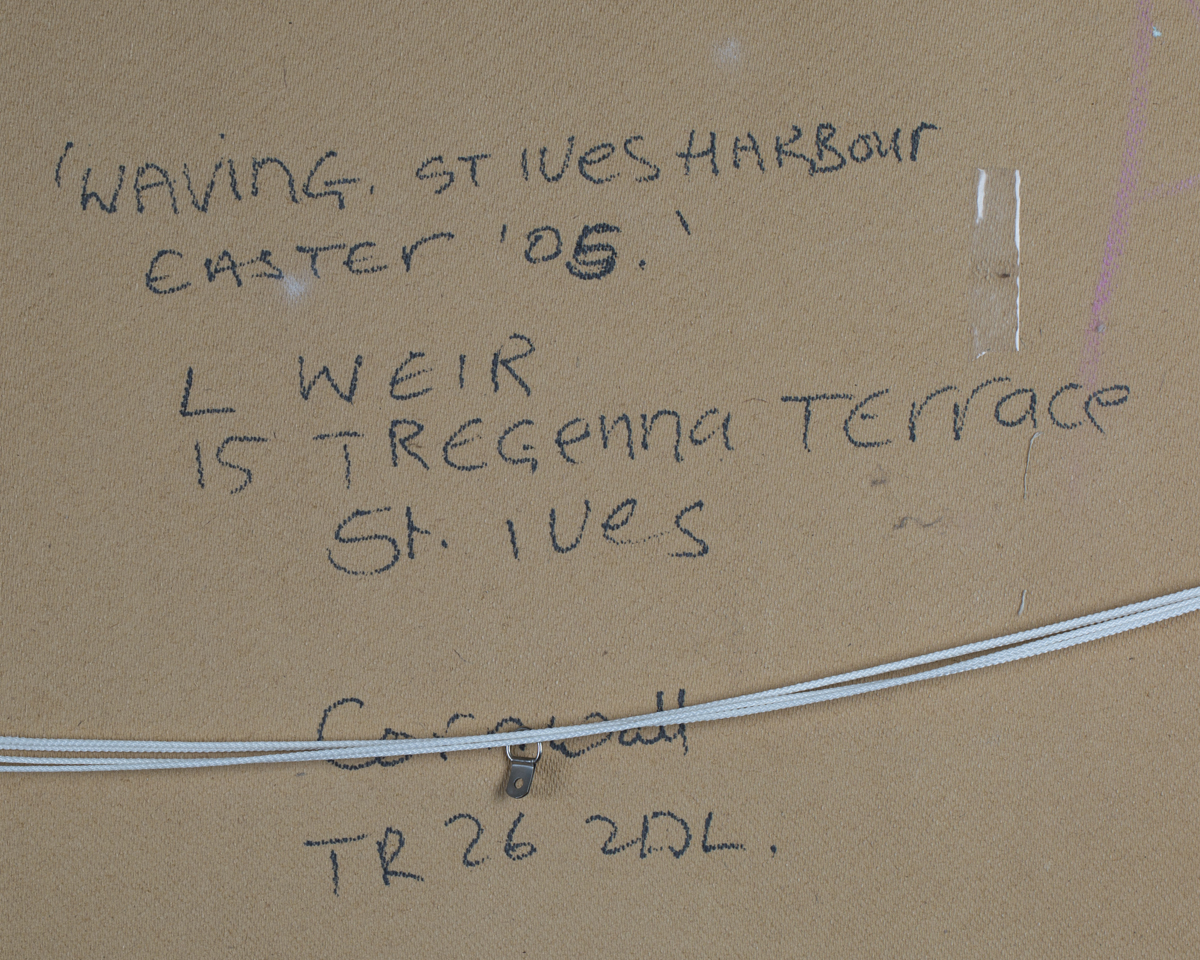 'WAVING. ST IVES HARBOUR
EASTER '05.'
L WEIR
15 TREGENNA TERRACE
St. IVES
Cornwall
TR26 2DL.